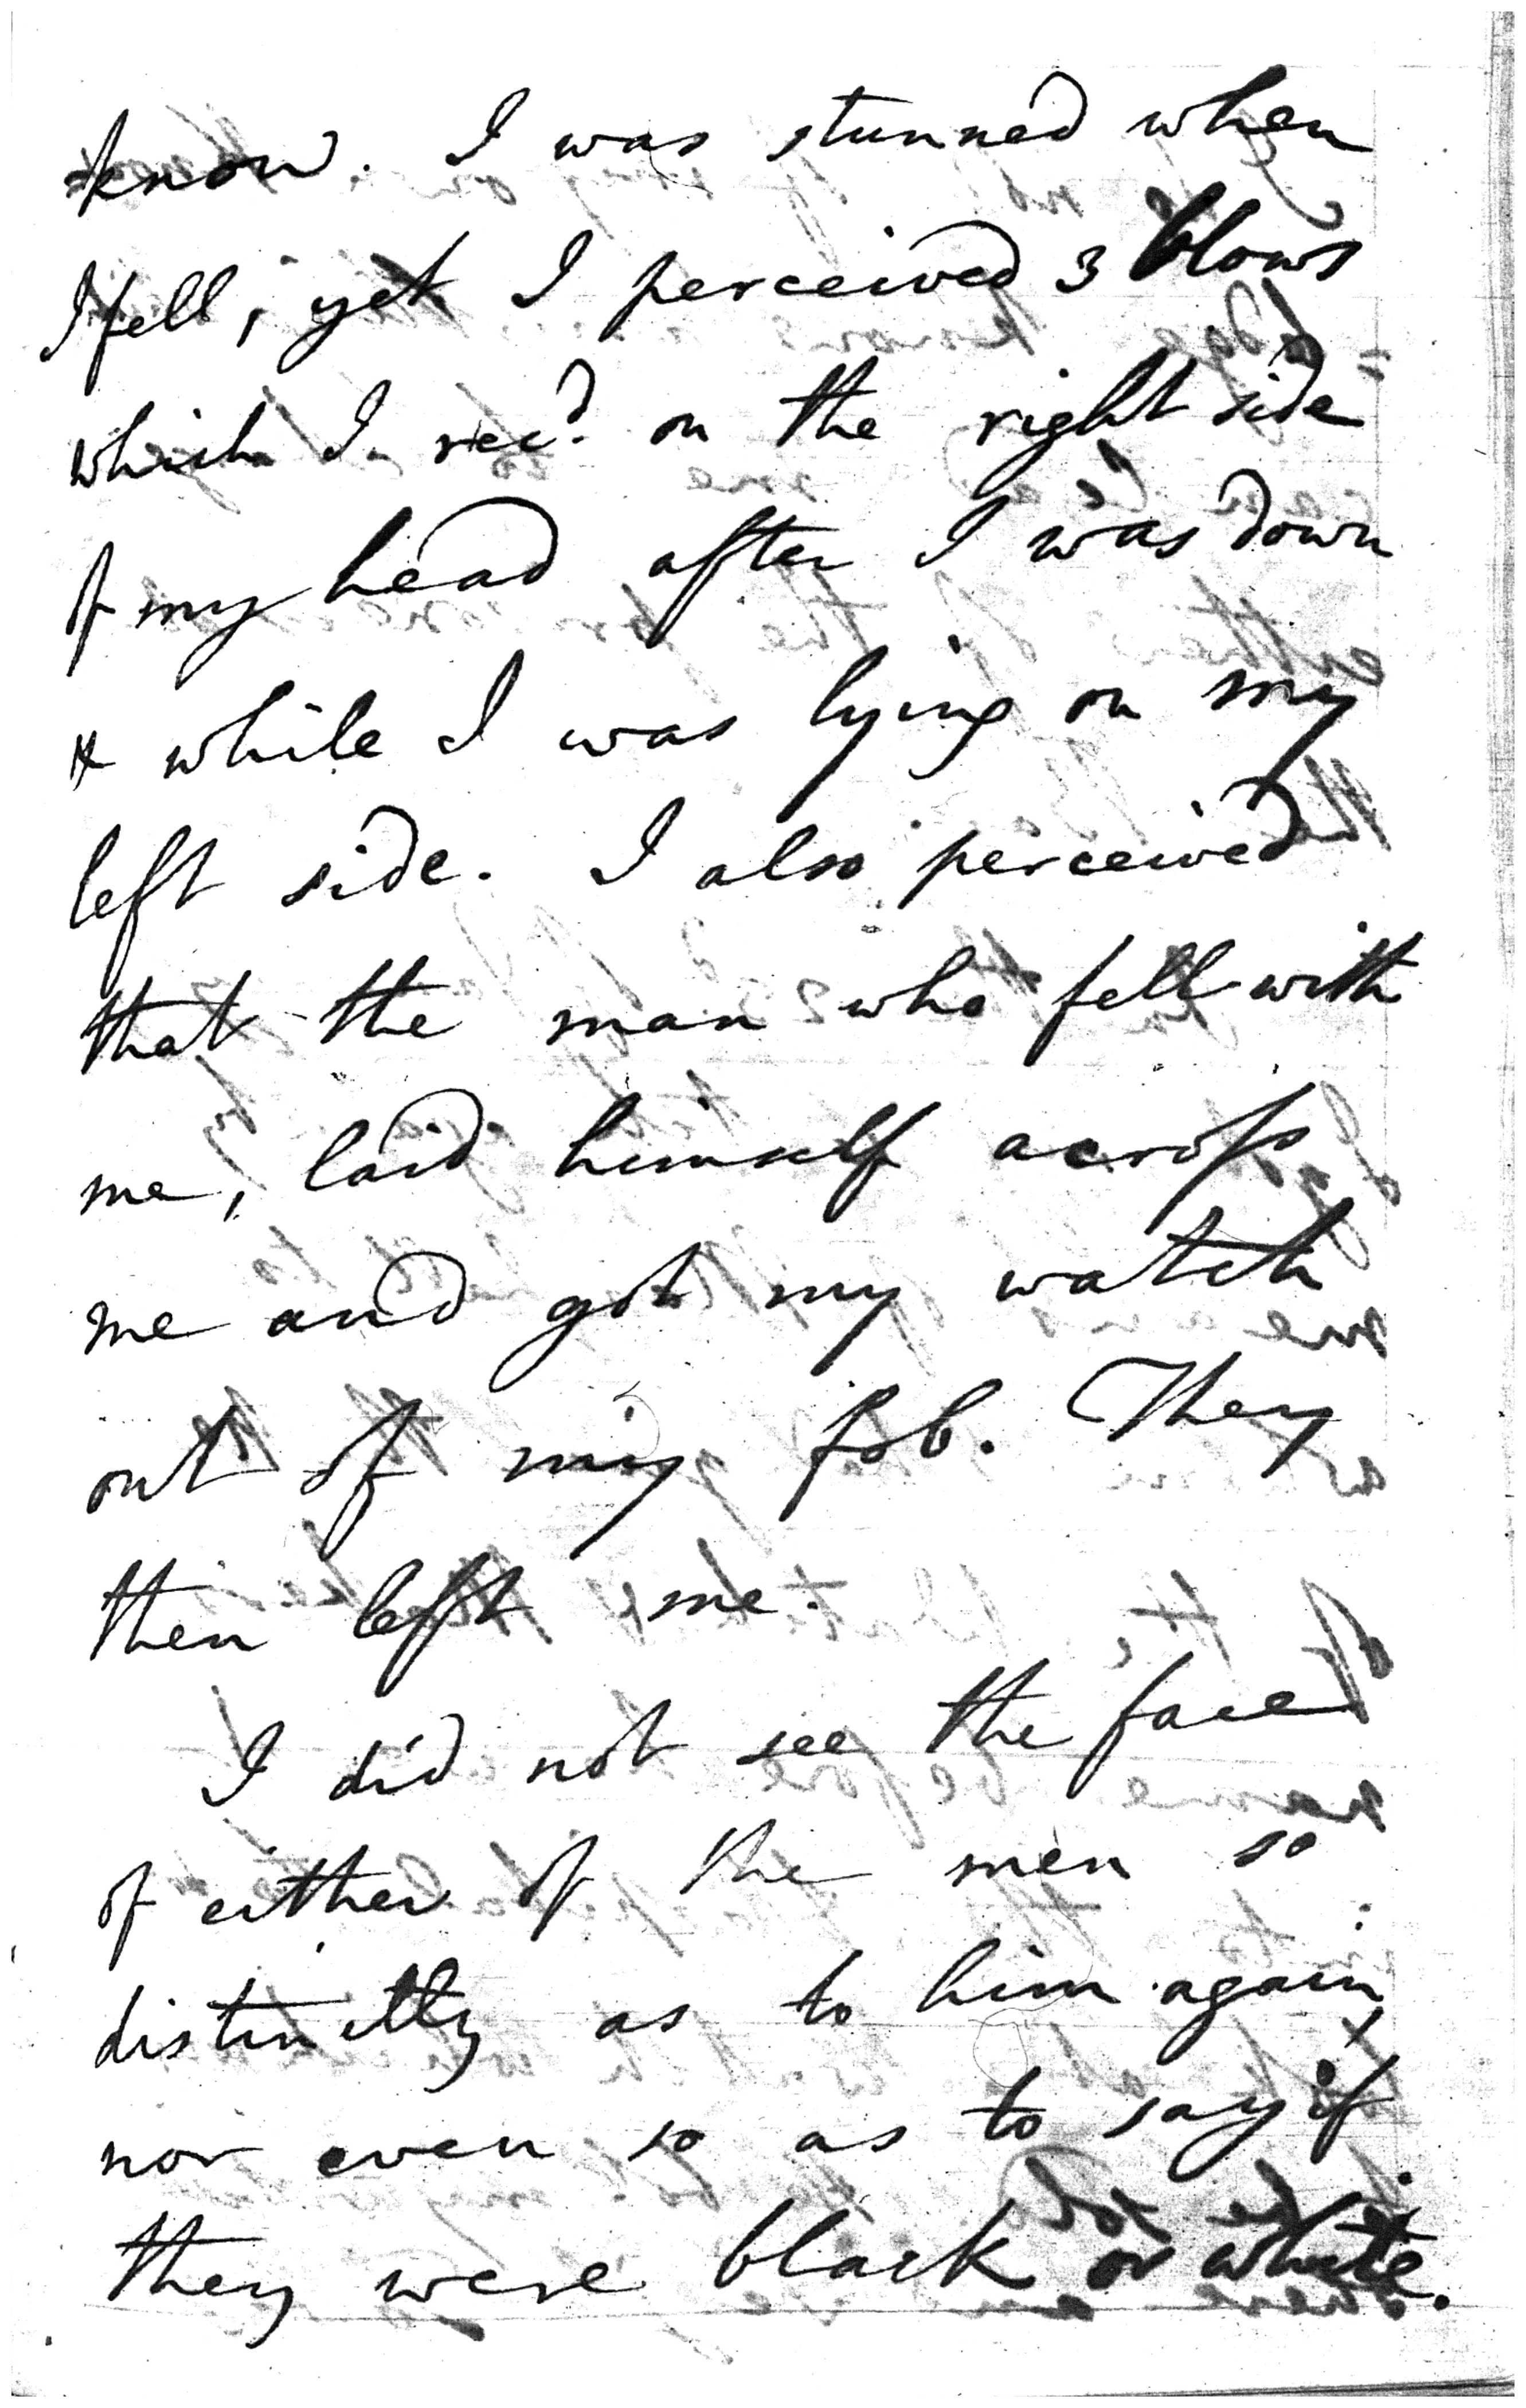 know. I was stunned when
I fell, yet I perceived 3 blows
which I recd. on the right side
of my head after I was down
& while I was lying on my
left side. I also perceived
that the man who fell with
me, laid himself across
me and got my watch
out of my fob. They
then left me.
I did not see the face
of either of the men so
distinctly as to him again,
nor even so as to say if
they were black or white.